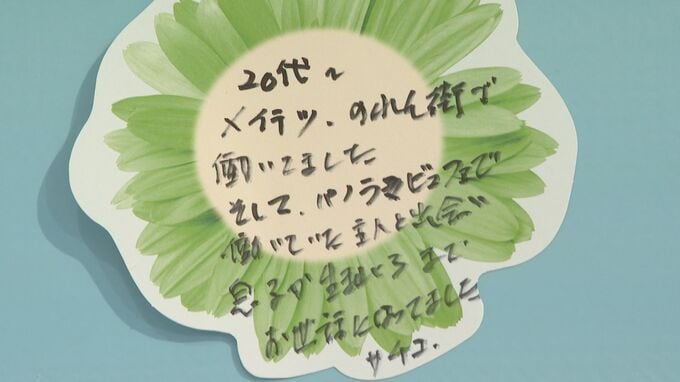 20代〜
メイテツ、のれん街で
働いてました
そして、パノラマビュフェで
働いていた主人と出会い
息子が生まれるまで
お世話になってました
サチコ.